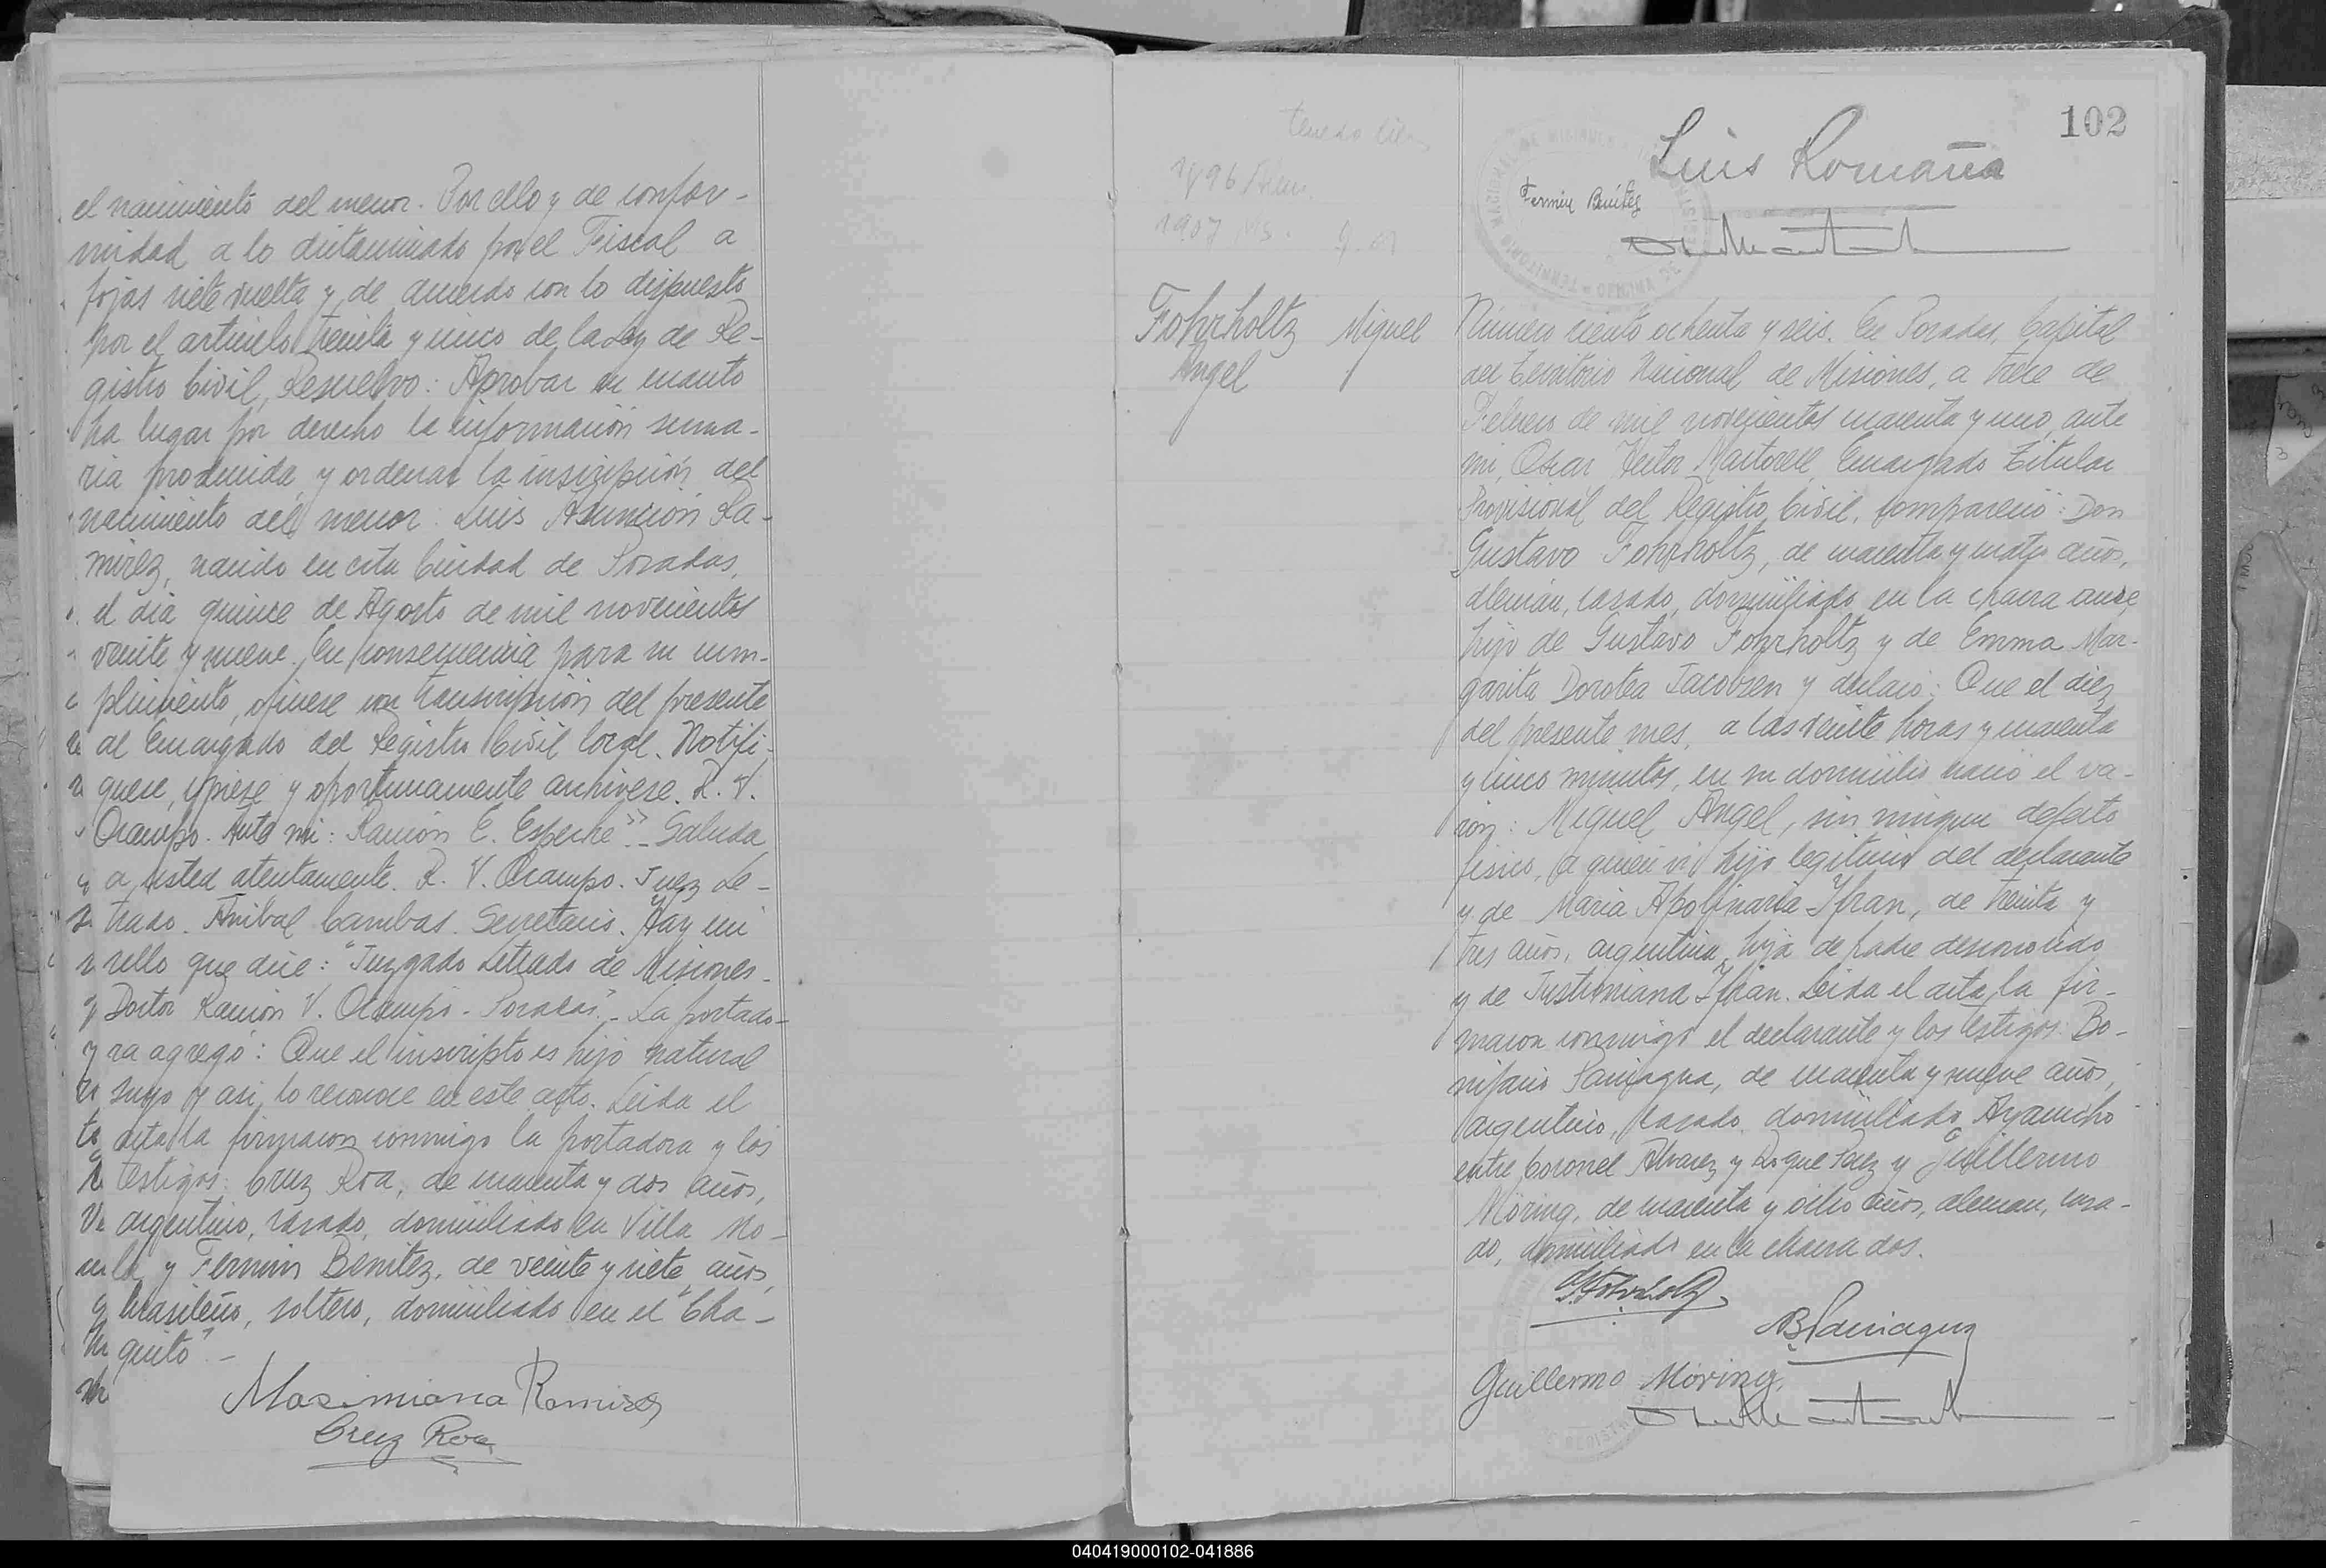 el nacimiento del menor. Por ello y de confor-
midad a lo dictaminado por el Fiscal a
fojas siete vuelta y de acuerdo con lo dispuesto
por el articulo treinta y cinco de la Ley de Re-
gistro Civil, Resuelvo: Aprobar en cuanto
ha lugar por derecho la informacion suma-
ria producida y ordenar la inscripción del
nacimiento del menor: Luis Asunción Ra-
mirez, nacido en esta Ciudad de Posadas,
el dia quince de Agosto de mil novecientos
veinte y nueve. En consecuencia para su cum-
plimiento, ofíciese con transcripción del presente
al Encargado del Registro Civil local. Notifi-
quese, cópiese y oportunamente archívese. R. V.
Ocampo. Ante mi: Ramón E. Espeche". - Saluda
a usted atentamente. R. V. Ocampo. Juez Le-
trado. Anibal Cambas. Secretario. Hay un
sello que dice: "Juzgado Letrado de Misiones-
Doctor Ramón V. Ocampo - Posadas". - La portado-
ra agregó: Que el inscripto es hijo natural
suyo y asi lo reconoce en este acto. Leida el
acta la firmaron conmigo la portadora y los
testigos: Cruz Roa, de cuarenta y dos años,
argentino, casado, domiciliado en Villa Mo-
la y Fermin Benitez, de veinte y siete años,
brasileño, soltero, domiciliado en el "Cha-
quito". -
Maximiana Ramirez
Cruz Roa
102
Luis Romaña
Fermin Benítez
Fohrholtz Miguel
Angel
Número ciento ochenta y seis. En Posadas, Capital
del Territorio Nacional de Misiones, a trece de
Febrero de mil novecientos cuarenta y uno, ante
mi, Oscar Hector Martorell, Encargado Titular
Provisional del Registro Civil, compareció: Don
Gustavo Fohrholtz, de cuarenta y cuatro años,
alemán, casado, domiciliado en la chacra once,
hijo de Gustavo Fohrholtz y de Emma Mar-
garita Dorotea Jacobsen y declaró: Que el diez
del presente mes, a las veinte horas y cuarenta
y cinco minutos, en su domicilio nació el va-
rón: Miguel Angel, sin ningun defecto
fisico, a quien vi hijo legitimo del declarante
y de Maria Apolinaria Ifran, de treinta y
tres años, argentina, hija de padre desconocido
y de Justiniana Ifran. Leida el acta, la fir-
maron conmigo el declarante y los testigos: Bo-
nifacio Paniagua, de cuarenta y nueve años,
argentino, casado, domiciliado Ayacucho
entre Coronel Alvarez y Roque Perez y Guillermo
Möring, de cuarenta y ocho años, aleman, casa-
do, domiciliado en la chacra dos.
G. Fohrholtz
B. Paniagua
Guillermo Möring.
040419000102-041886